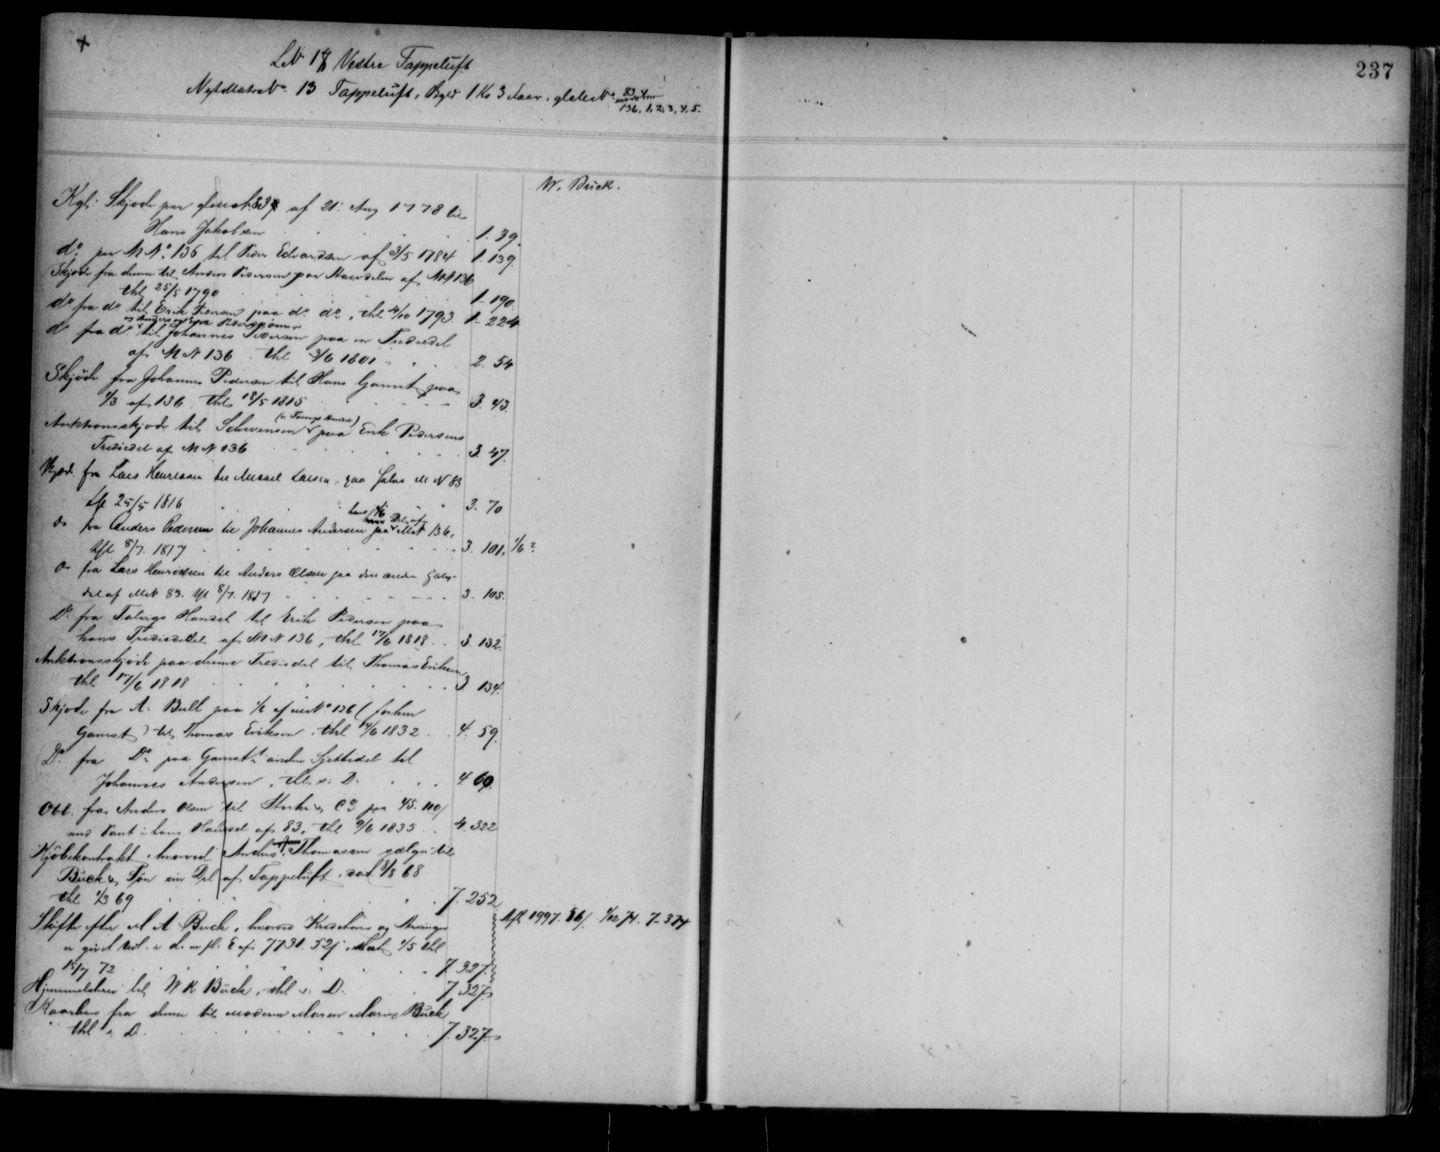 237
LN 18 Vestre Tappeluft
Nymatr No. 13 Tappeluft, Skyld 1 Ko 3 Laar, glmatr No. 83,
136, 1, 2, 3, 4, 5.
W. Buck.
Kgl: Skjøde paa glmat. 83 af 21. Aug 1778 til
Hans Jakobsen 1. 39.
do. paa MNo. 136 til Peder Edvardsen af 3/5 1784 1. 139.
Skjøde fra denne til Anders Pedersen paa Halvdelen af MN 136
thl 25/5 1790 1. 190.
do fra do til Erik Pedersen paa do. do., thl 1793 1. 224
do fra do til Johannes Pedersen paa en Trediedel
af MN 136 thl 3/6 1801 2. 54
Skjøde fra Johannes Pedersen til Hans Gamst paa
1/3 af 136, thl 18/5 1815 3. 43.
Auktionsskjøde til Schwensen paa Erik Pedersens
Trediedel af MN 136 3. 47.
Skjøde fra Lars Henriksen til Mikkel Larsen, paa halve MN 83
thl 25/5 1816 3. 70
hans 1/6 Del af
do fra Anders Pedersen til Johannes Andersen paa MN 136,
thl 8/7 1817 3. 101. 1/6?
do fra Lars Henriksen til Anders Olsen paa den anden Halv-
del af MN 83. thl 8/7. 1817 3. 105.
Do fra Tabergs Handel til Erik Pedersen paa
hans Trediedel af MN 136, thl 17/6 1818 3. 132.
Auktionsskjøde paa denne Trediedel til Thomas Eriksen
thl 17/6 1818 3 134.
Skjøde fra A. Bull paa 1/6 af MNo 136 (forhen
Gamst) til Thomas Eriksen, thl 14/6 1832 4. 59.
Do. fra Do. paa Gamsts anden Sjettedel til
Johannes Andersen, thl s. D. 4 60.
Obl. fra Anders Olsen til Co paa 45.
med Pant i hans Halvdel af 83, thl 9/6 1835 4. 322
Kjøbekontrakt, hvorved Anders Thomasen sælger til
Buck & Søn sin Del af Tappeluft, dat 8/8 68
thl 1/3 69 7. 252
Skifte efter M A Buck, hvorved Kreditors og Arvinger
er givet Udl. i d. m. fl. E af 7731. 52, dat 1/5 thl
15/7 72 7. 327
Afl 1997. 86/ 1/12 74. 7-374
Hjemmelsbrev til W K Buck, thl s. D. 7. 327
Kaarbrev fra denne til Moderen Maren Marie Buck
thl s. D. 7. 327